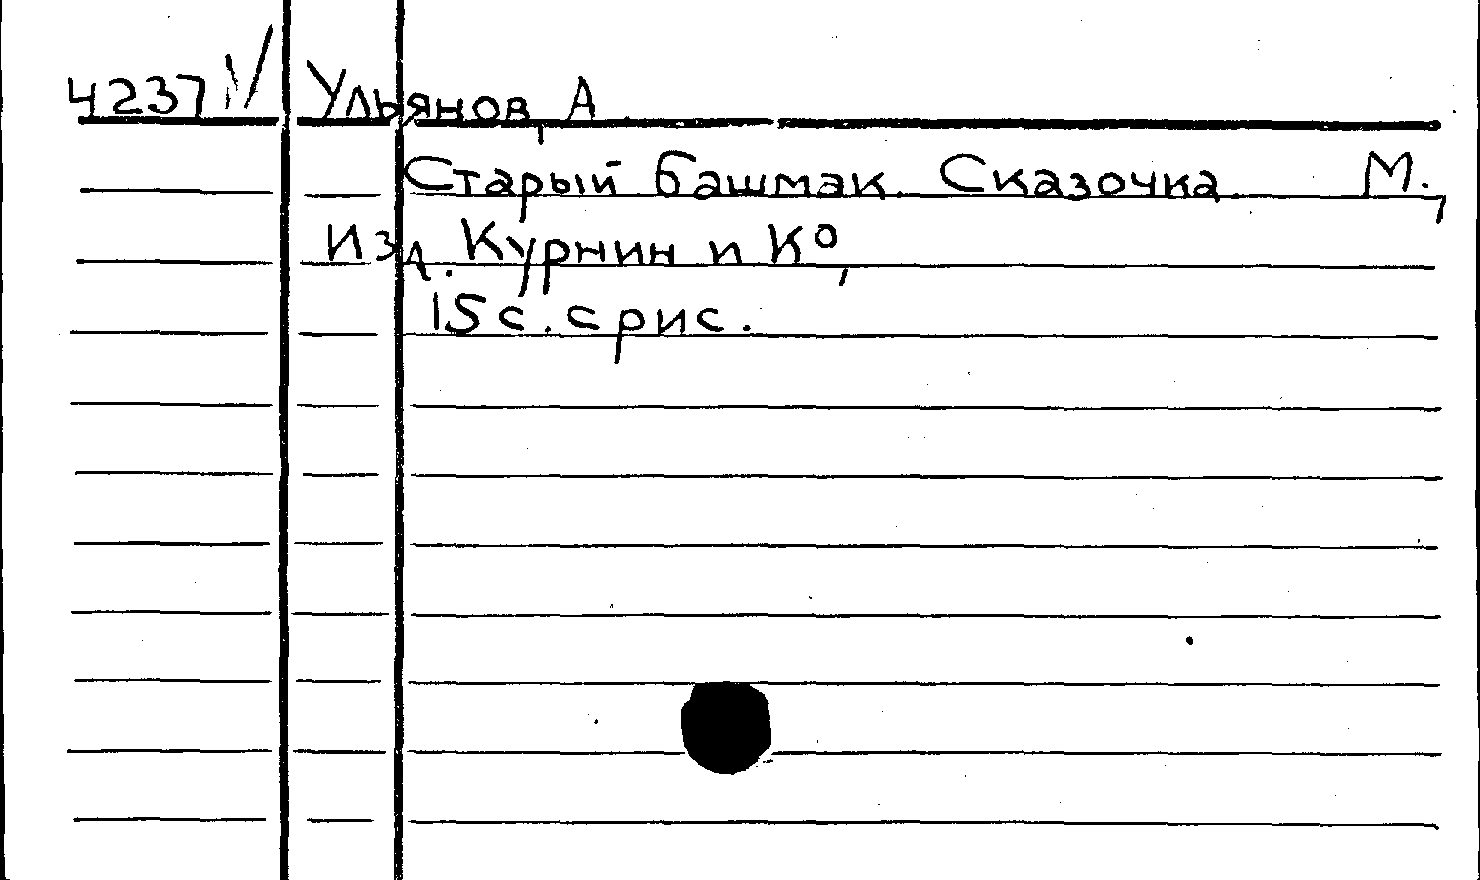 4237 V Ульянов, А
Старый башмак. Сказочка М.,
Изд. Курнин и Кº,
15 с. с рис.